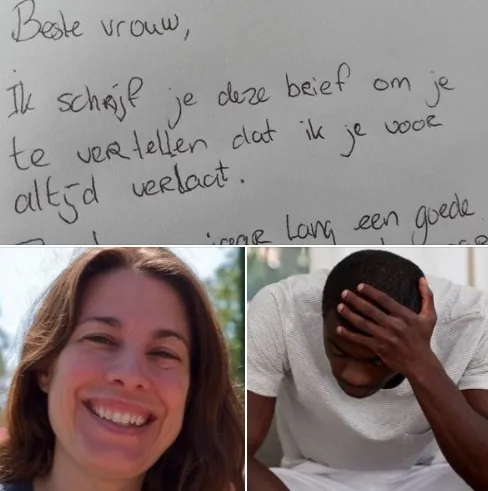 Beste vrouw,
Ik schrijf je deze brief om je
te vertellen dat ik je voor
altijd verlaat.
lang een goede